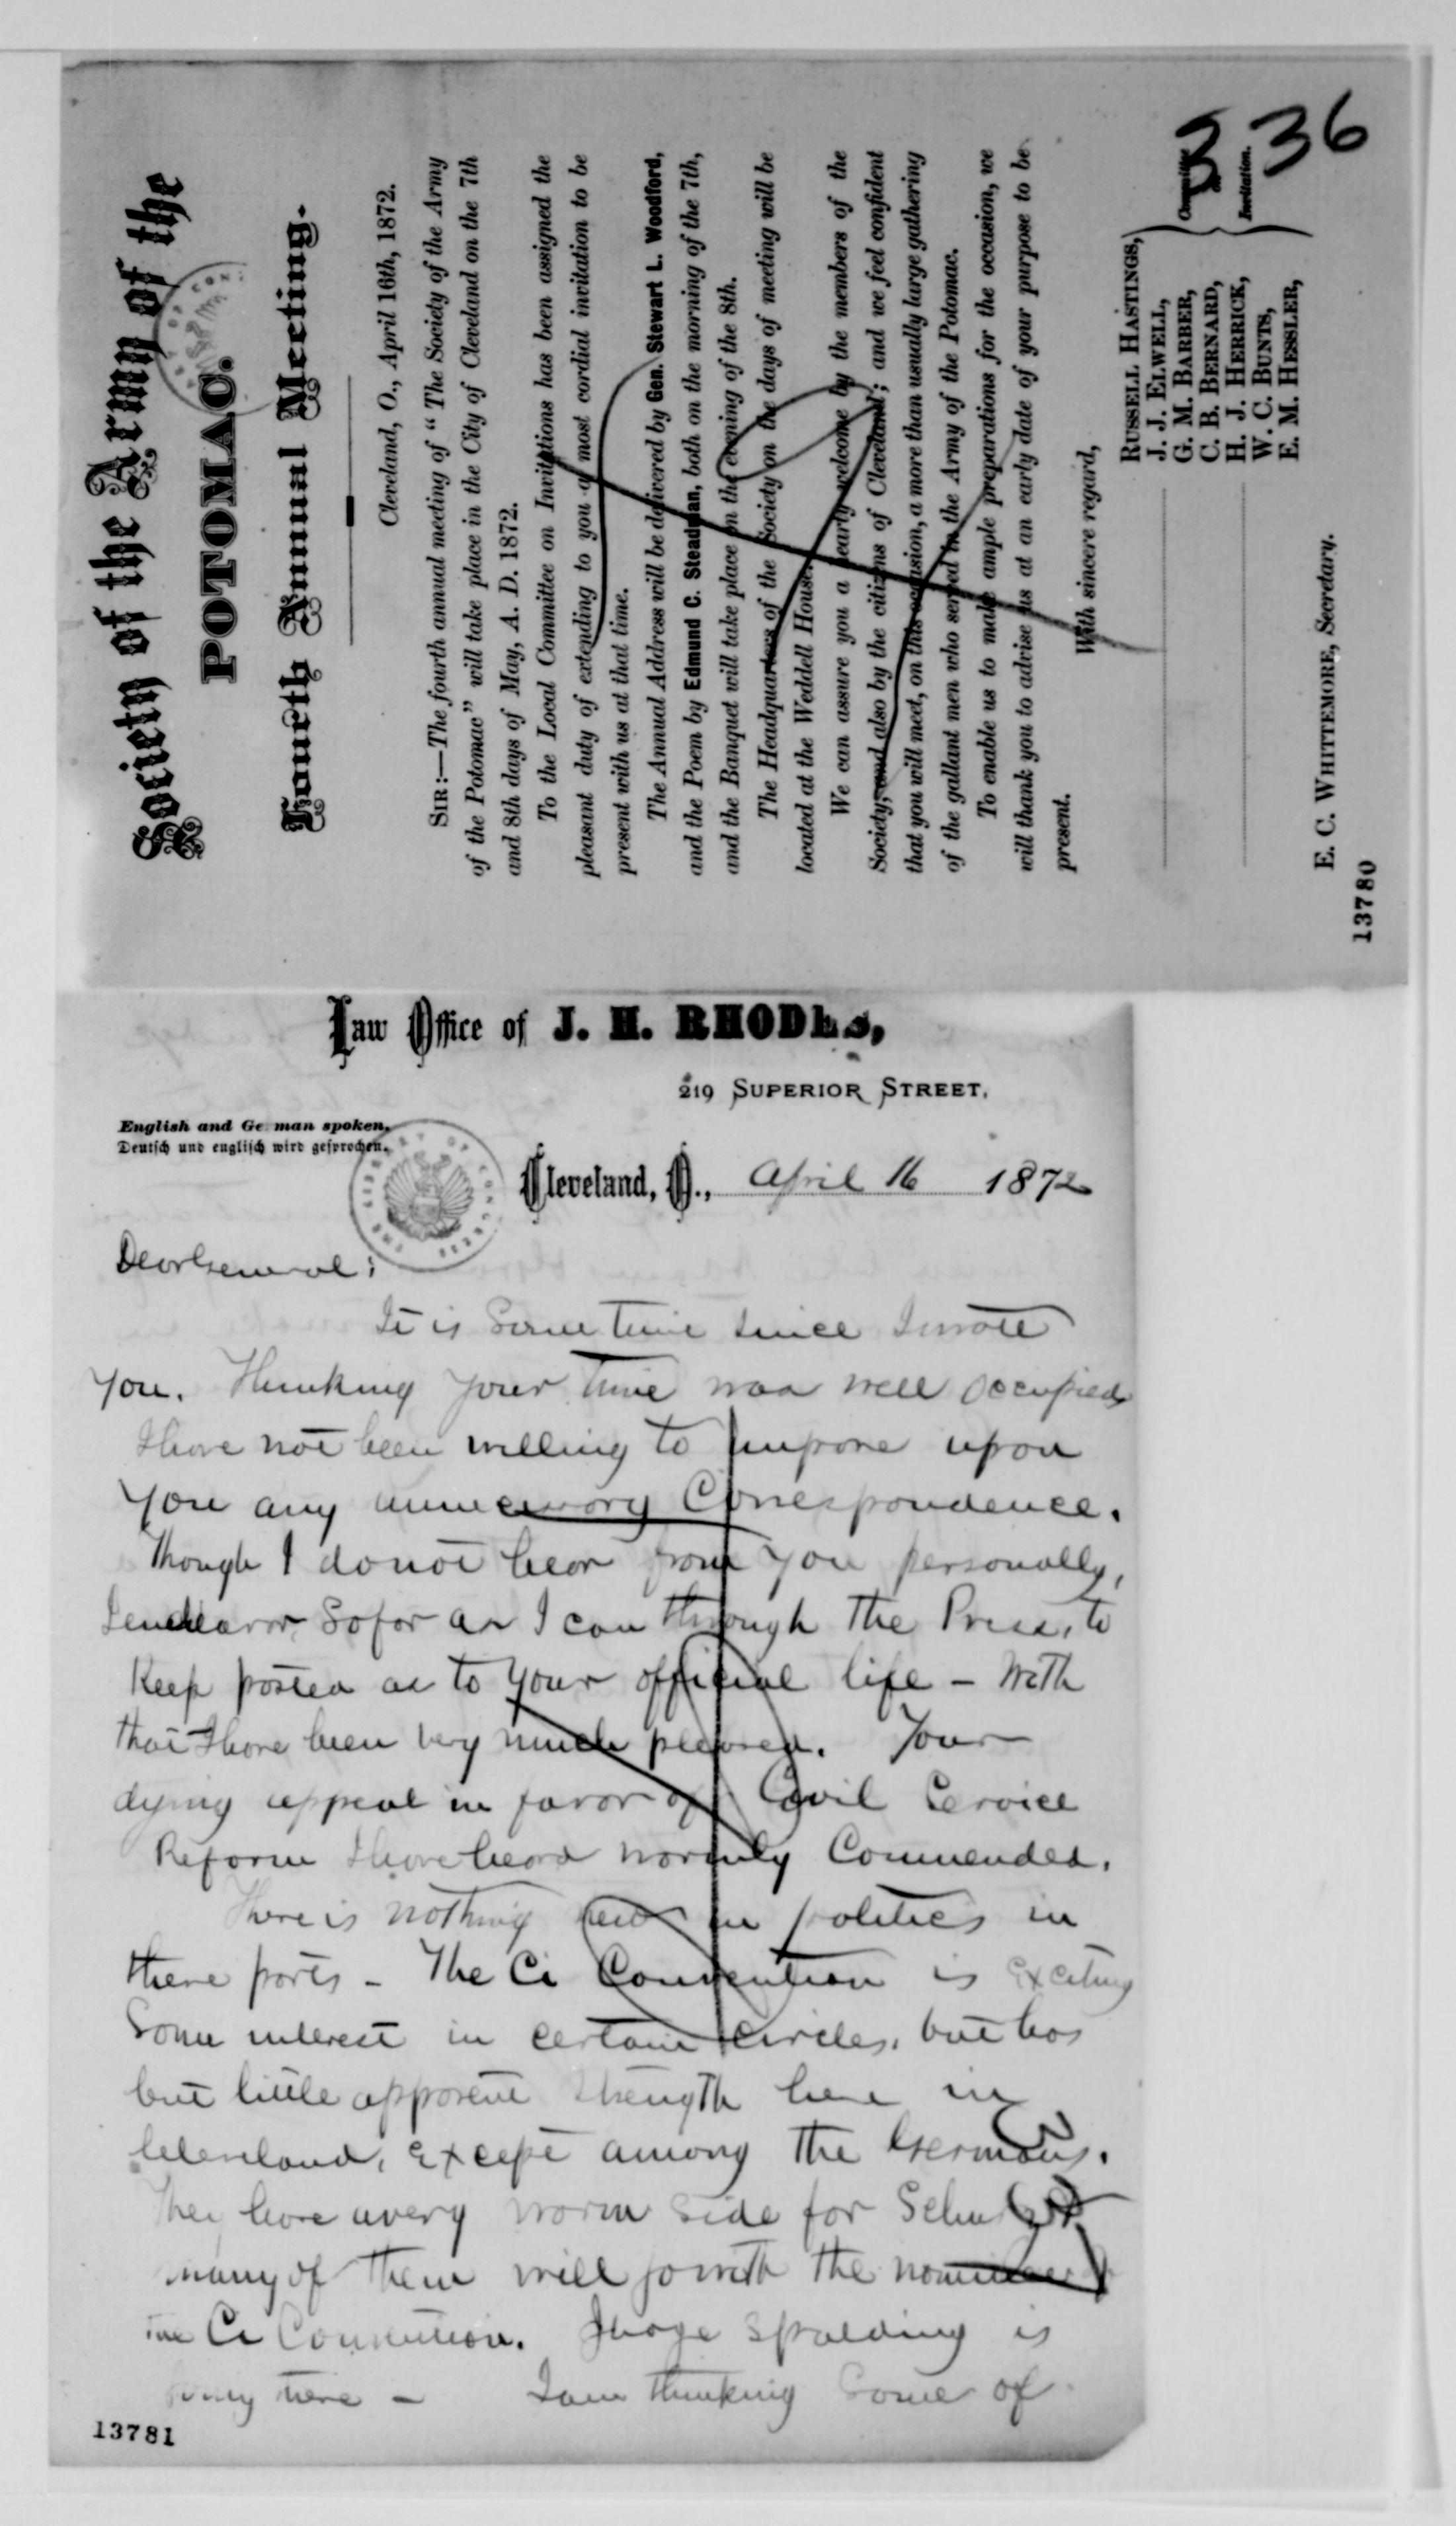 Society of the Army of the
POTOMAC.
Fourth Annual Meeting.
Cleveland, O., April 16th, 1872.
SIR:—The fourth annual meeting of "The Society of the Army
of the Potomac" will take place in the City of Cleveland on the 7th
and 8th days of May, A. D. 1872.
To the Local Committee on Invitations has been assigned the
pleasant duty of extending to you a most cordial invitation to be
present with us at that time.
The Annual Address will be delivered by Gen. Stewart L. Woodford,
and the Poem by Edmund C. Steadman, both on the morning of the 7th,
and the Banquet will take place on the evening of the 8th.
The Headquarters of the Society on the days of meeting will be
located at the Weddell House.
We can assure you a hearty welcome by the members of the
Society, and also by the citizens of Cleveland; and we feel confident
that you will meet, on this occasion, a more than usually large gathering
of the gallant men who served in the Army of the Potomac.
To enable us to make ample preparations for the occasion, we
will thank you to advise us at an early date of your purpose to be
present.
With sincere regard,
RUSSELL HASTINGS,
J. J. ELWELL,
G. M. BARBER,
C. B. BERNARD,
H. J. HERRICK,
W. C. BUNTS,
E. M. HESSLER,
Committee
Invitation.
E. C. WHITTEMORE, Secretary.
36
13780
Law Office of J. H. RHODES,
219 SUPERIOR STREET,
English and German spoken.
Deutsch und englisch wird gesprochen.
LIBRARY OF CONGRESS
Cleveland, O., April 16 1872
Dear General:
It is some time since I wrote
you. Thinking your time was well occupied
I have not been willing to impose upon
you any unnecessary Correspondence.
Though I do not hear from you personally,
I endeavor so far as I can through the Press, to
Keep posted as to your official life – With
that I have been very much pleased. Your
dying appeal in favor of Civil Service
Reform I have heard warmly Commended.
There is nothing new in politics in
these parts – The Ci Convention is exciting
Some interest in certain circles, but has
but little apparent strength here in
Cleveland, except among the Germans.
They have a very warm side for Schurz &
many of them will go with the nominee of
the Ci Convention. Judge Spalding is
going there – I am thinking Some of
13781